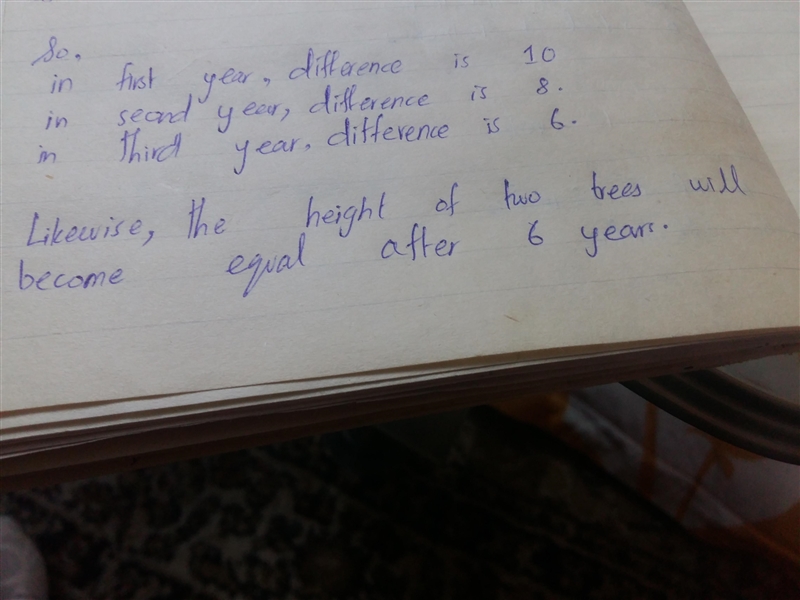 So,
in first year, difference is 10
in second year, difference is 8.
in third year, difference is 6.
Likewise, the height of two trees will
become equal after 6 years.